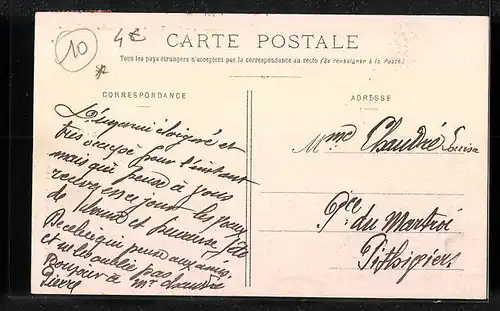 10
4€
*
CARTE POSTALE
Tous les pays étrangers n'acceptent pas la correspondance au recto (Se renseigner à la Poste)
CORRESPONDANCE
ADRESSE
éloigné et
très occupé pour l'instant
mais qui pense à vous
ce jour les
de bonne et heureuse fête
qui pense aux amis
et ne les oublie pas
Bonjour à Mr Chaudré
Pierre
Mme Chaudré Louise
Pce du Martroi
Pithiviers